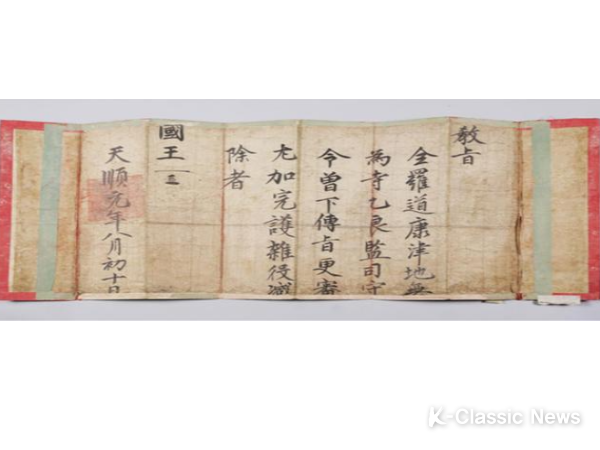 教旨
全羅道康津地無
為寺乙良監司守
令曾下傳旨更審
尤加完護雜役減
除者
國王
天順元年八月初十日
K-Classic News